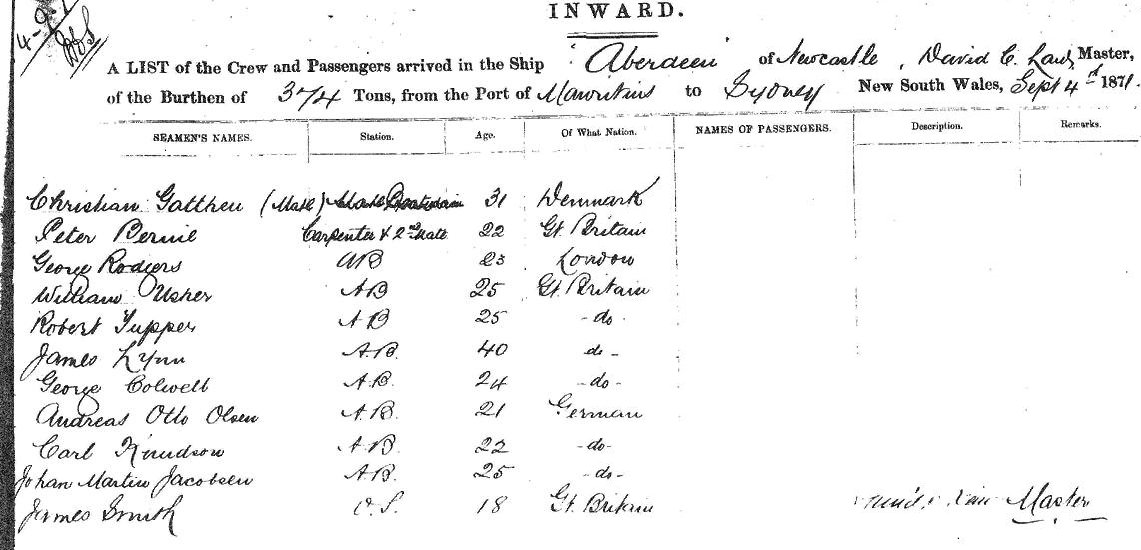 INWARD.
4-9-
A LIST of the Crew and Passengers arrived in the Ship "Aberdeen" of Newcastle, David C. Law, Master,
of the Burthen of 374 Tons, from the Port of Mauritius to Sydney New South Wales, Sept 4th 1871.
SEAMEN'S NAMES. Station. Age. Of What Nation. NAMES OF PASSENGERS. Description. Remarks.
Christian Gatthen (Mate) 31 Denmark
Peter Bernie Carpenter & 2nd Mate 22 Gt Britain
George Rodgers AB 23 London
William Usher AB 25 Gt. Britain
Robert Tupper AB 25 -do-
James Lynn A.B. 40 do-
George Colwell A.B. 24 -do-
Andreas Otto Olsen A.B. 21 German
Carl Knudson A.B. 22 -do-
Johan Martin Jacobsen A.B. 25 -do-
James Smith O.S. 18 Gt. Britain Master